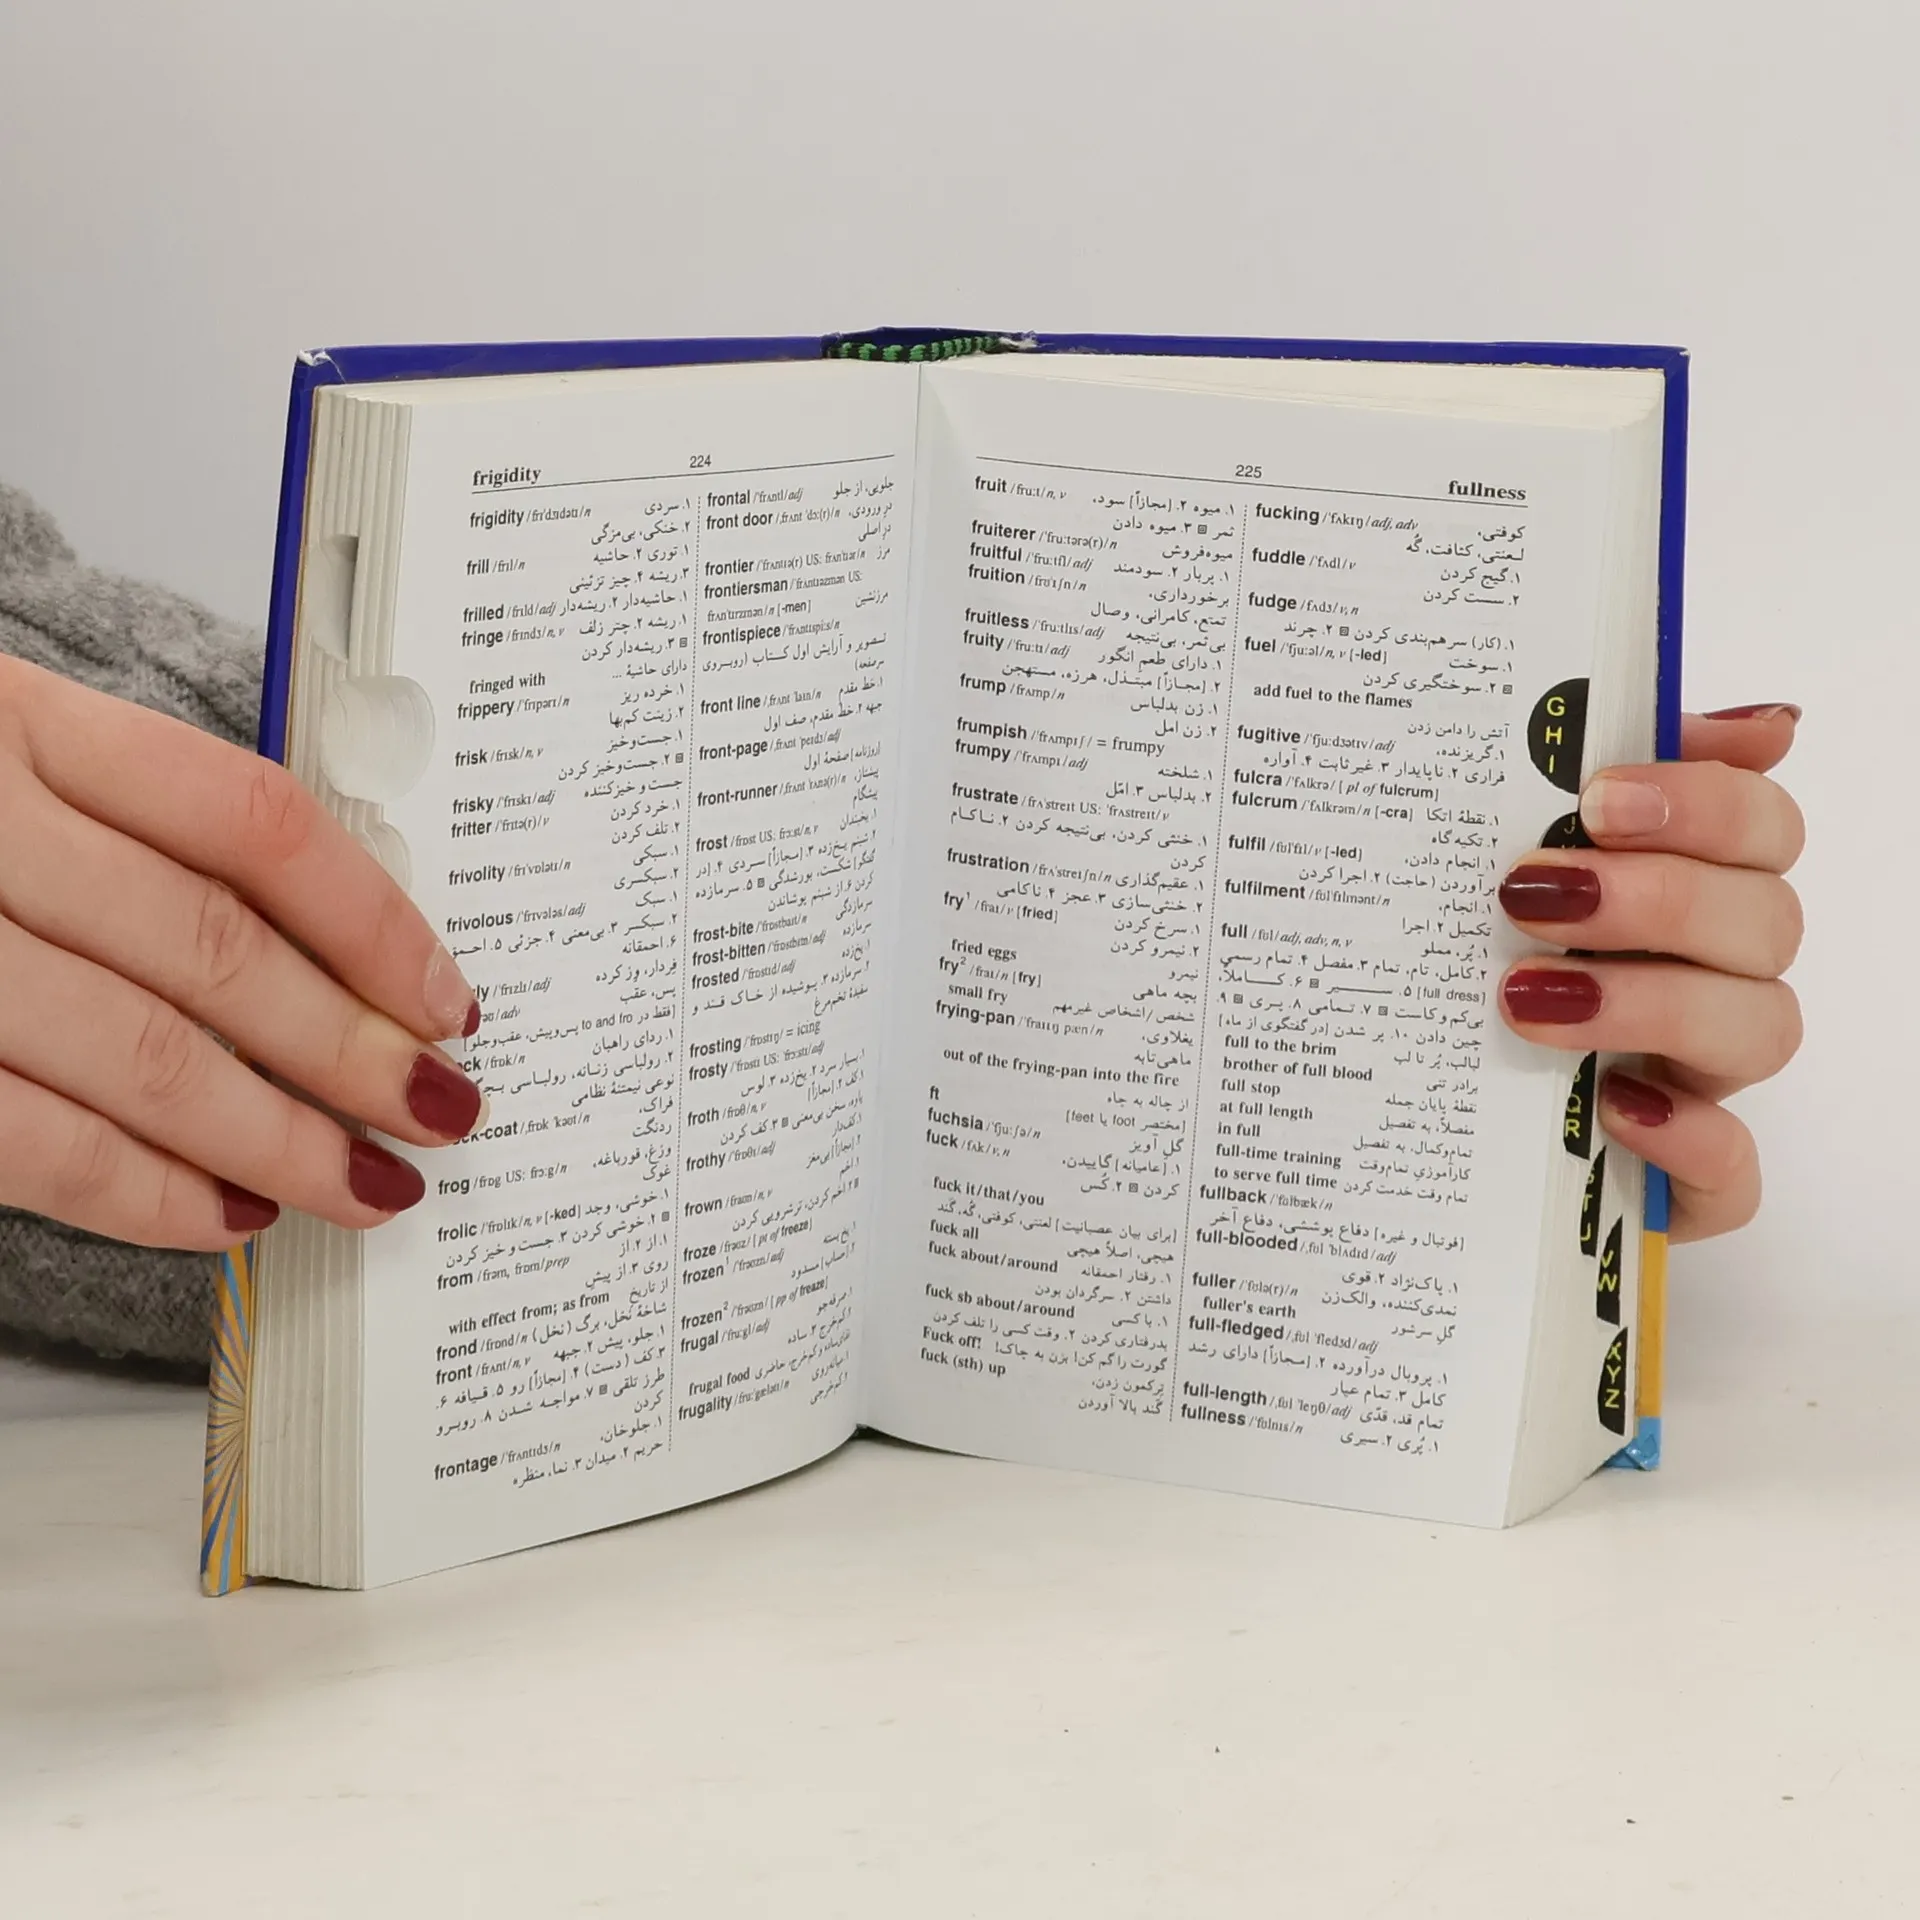 frigidity 224
frigidity /frɪˈdʒɪdətɪ/n ۱. سردی
۲. خنکی، بی‌مزگی
frill /frɪl/n ۱. توری ۲. حاشیه
۳. ریشه ۴. چیز تزئینی
frilled /frɪld/adj ۱. حاشیه‌دار ۲. ریشه‌دار
fringe /frɪndʒ/n, v ۱. ریشه ۲. چتر زلف
۳. ریشه‌دار کردن
fringed with دارای حاشیهٔ ...
frippery /ˈfrɪpərɪ/n ۱. خرده ریز
۲. زینت کم‌بها
frisk /frɪsk/n, v ۱. جست‌وخیز
۲. جست‌وخیز کردن
frisky /ˈfrɪskɪ/adj جست و خیزکننده
fritter /ˈfrɪtə(r)/v ۱. خرد کردن
۲. تلف کردن
frivolity /frɪˈvɒlətɪ/n ۱. سبکی
۲. سبکسری
frivolous /ˈfrɪvələs/adj ۱. سبک
۲. سبکسر ۳. بی‌معنی ۴. جزئی ۵. احمق
۶. احمقانه
/ˈfrɪzlɪ/adj فردار، وزکرده
/adv پس، عقب
[فقط در to and fro پس‌وپیش، عقب‌وجلو]
/frɒk/n ۱. ردای راهبان
۲. رولباسی زنانه، رولباسی
نوعی نیمتنهٔ نظامی
-coat /ˌfrɒk ˈkəʊt/n فراک،
ردنگت
frog /frɒg US: frɔːg/n وزغ، قورباغه،
غوک
frolic /ˈfrɒlɪk/n, v [-ked] ۱. خوشی، وجد
۲. خوشی کردن ۳. جست و خیز کردن
from /frəm, frɒm/prep ۱. از ۲. از
روی ۳. از پیش
with effect from; as from از تاریخ
frond /frɒnd/n شاخهٔ نخل، برگ (نخل)
front /frʌnt/n, v ۱. جلو، پیش ۲. جبهه
۳. کف (دست) ۴. [مجازاً] رو ۵. قیافه ۶.
طرز تلقی ۷. مواجه شدن ۸. روبرو
کردن
frontage /ˈfrʌntɪdʒ/n ۱. جلوخان،
حریم ۲. میدان ۳. نما، منظره
frontal /ˈfrʌntl/adj جلویی، از جلو
front door /ˌfrʌnt ˈdɔː(r)/n در ورودی،
در اصلی
frontier /ˈfrʌntɪə(r) US: frʌnˈtɪər/n مرز
frontiersman /ˈfrʌntɪəzmən US:
frʌnˈtɪrzmən/n [-men] مرزنشین
frontispiece /ˈfrʌntɪspiːs/n
تصویر و آرایش اول کتاب (روبروی
سرصفحه)
front line /ˌfrʌnt ˈlaɪn/n ۱. خط مقدم
جبهه ۲. خط مقدم، صف اول
front-page /ˌfrʌnt ˈpeɪdʒ/adj
[روزنامه] صفحهٔ اول
front-runner /ˌfrʌnt ˈrʌnə(r)/n پیشتاز،
پیشگام
frost /frɒst US: frɔːst/n, v ۱. یخبندان
۲. شبنم یخ‌زده ۳. [مجازاً] سردی ۴. [در
گفتگو] شکست، بورشدگی ۵. سرمازده
کردن ۶. از شبنم پوشاندن
frost-bite /ˈfrɒstbaɪt/n سرمازدگی
frost-bitten /ˈfrɒstbɪtn/adj سرمازده
frosted /ˈfrɒstɪd/adj ۱. یخ‌زده
۲. سرمازده ۳. پوشیده از خاک قند و
سفیدهٔ تخم‌مرغ
frosting /ˈfrɒstɪŋ/ = icing
frosty /ˈfrɒstɪ US: ˈfrɔːstɪ/adj
۱. بسیار سرد ۲. یخ‌زده ۳. لوس
froth /frɒθ/n, v ۱. کف ۲. [مجازاً]
یاوه، سخن بی‌معنی ۳. کف کردن
frothy /ˈfrɒθɪ/adj ۱. کف‌دار
۲. [مجازاً] بی‌مغز
frown /fraʊn/n, v ۱. اخم
۲. اخم کردن، ترشرویی کردن
froze /frəʊz/ [pt of freeze]
frozen¹ /ˈfrəʊzn/adj ۱. یخ‌بسته
۲. [حساب] مسدود
frozen² /ˈfrəʊzn/ [pp of freeze]
frugal /ˈfruːgl/adj ۱. صرفه‌جو
۲. کم‌خرج ۳. ساده
frugal food غذای ساده و کم‌خرج، حاضری
frugality /fruːˈgælətɪ/n ۱. میانه‌روی
۲. کم‌خرجی
225 fullness
fruit /fruːt/n, v ۱. میوه ۲. [مجازاً] سود،
ثمر ۳. میوه دادن
fruiterer /ˈfruːtərə(r)/n میوه‌فروش
fruitful /ˈfruːtfl/adj ۱. پربار ۲. سودمند
fruition /fruːˈɪʃn/n برخورداری،
تمتع، کامرانی، وصال
fruitless /ˈfruːtlɪs/adj بی‌ثمر، بی‌نتیجه
fruity /ˈfruːtɪ/adj ۱. دارای طعم انگور
۲. [مجازاً] مبتذل، هرزه، مستهجن
frump /frʌmp/n ۱. زن بدلباس
۲. زن امل
frumpish /ˈfrʌmpɪʃ/ = frumpy
frumpy /ˈfrʌmpɪ/adj ۱. شلخته
۲. بدلباس ۳. امّل
frustrate /frʌˈstreɪt US: ˈfrʌstreɪt/v
۱. خنثی کردن، بی‌نتیجه کردن ۲. ناکام
کردن
frustration /frʌˈstreɪʃn/n ۱. عقیم‌گذاری
۲. خنثی‌سازی ۳. عجز ۴. ناکامی
fry¹ /fraɪ/v [fried] ۱. سرخ کردن
۲. نیمرو کردن
fried eggs نیمرو
fry² /fraɪ/n [fry] بچه ماهی
small fry شخص/اشخاص غیرمهم
frying-pan /ˈfraɪɪŋ pæn/n یغلاوی،
ماهی‌تابه
out of the frying-pan into the fire
از چاله به چاه
ft [مختصر foot یا feet]
fuchsia /ˈfjuːʃə/n گل آویز
fuck /fʌk/v, n ۱. [عامیانه] گاییدن،
کردن ۲. کُس
fuck it/that/you
[برای بیان عصبانیت] لعنتی، کوفتی، گُه، گَند
fuck all هیچی، اصلاً هیچی
fuck about/around ۱. رفتار احمقانه
داشتن ۲. سرگردان بودن
fuck sb about/around ۱. با کسی
بدرفتاری کردن ۲. وقت کسی را تلف کردن
Fuck off! گورت را گم کن! بزن به چاک!
fuck (sth) up ترکمون زدن،
گَند بالا آوردن
fucking /ˈfʌkɪŋ/adj, adv کوفتی،
لعنتی، کثافت، گُه
fuddle /ˈfʌdl/v ۱. گیج کردن
۲. سست کردن
fudge /fʌdʒ/v, n
۱. (کار) سرهم‌بندی کردن ۲. چرند
fuel /ˈfjuːəl/n, v [-led] ۱. سوخت
۲. سوختگیری کردن
add fuel to the flames
آتش را دامن زدن
fugitive /ˈfjuːdʒətɪv/adj ۱. گریزنده،
فراری ۲. ناپایدار ۳. غیرثابت ۴. آواره
fulcra /ˈfʌlkrə/ [pl of fulcrum]
fulcrum /ˈfʌlkrəm/n [-cra] ۱. نقطهٔ اتکا
۲. تکیه‌گاه
fulfil /fʊlˈfɪl/v [-led] ۱. انجام دادن،
برآوردن (حاجت) ۲. اجرا کردن
fulfilment /fʊlˈfɪlmənt/n ۱. انجام،
تکمیل ۲. اجرا
full /fʊl/adj, adv, n, v ۱. پُر، مملو
۲. کامل، تام، تمام ۳. مفصل ۴. تمام رسمی
[full dress] ۵. سیر ۶. کاملاً،
بی‌کم وکاست ۷. تمامی ۸. پری ۹.
چین دادن ۱۰. پر شدن [در گفتگوی از ماه]
full to the brim لبالب، پُر تا لب
brother of full blood برادر تنی
full stop نقطهٔ پایان جمله
at full length مفصلاً، به تفصیل
in full تمام‌وکمال، به تفصیل
full-time training کارآموزی تمام‌وقت
to serve full time تمام وقت خدمت کردن
fullback /ˈfʊlbæk/n
[فوتبال و غیره] دفاع پوششی، دفاع آخر
full-blooded /ˌfʊl ˈblʌdɪd/adj
۱. پاک‌نژاد ۲. قوی
fuller /ˈfʊlə(r)/n نمدی‌کننده، والک‌زن
fuller's earth گلِ سرشور
full-fledged /ˌfʊl ˈfledʒd/adj
۱. پروبال درآورده ۲. [مجازاً] دارای رشد
کامل ۳. تمام عیار
full-length /ˌfʊl ˈleŋθ/adj تمام قد، قدّی
fullness /ˈfʊlnɪs/n ۱. پُری ۲. سیری
G
H
I
J
Q
R
S
T
U
V
W
X
Y
Z